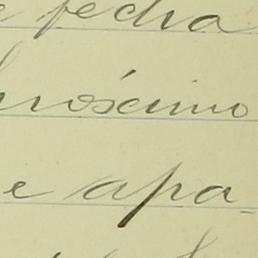 e fecha
próximo
e apa-